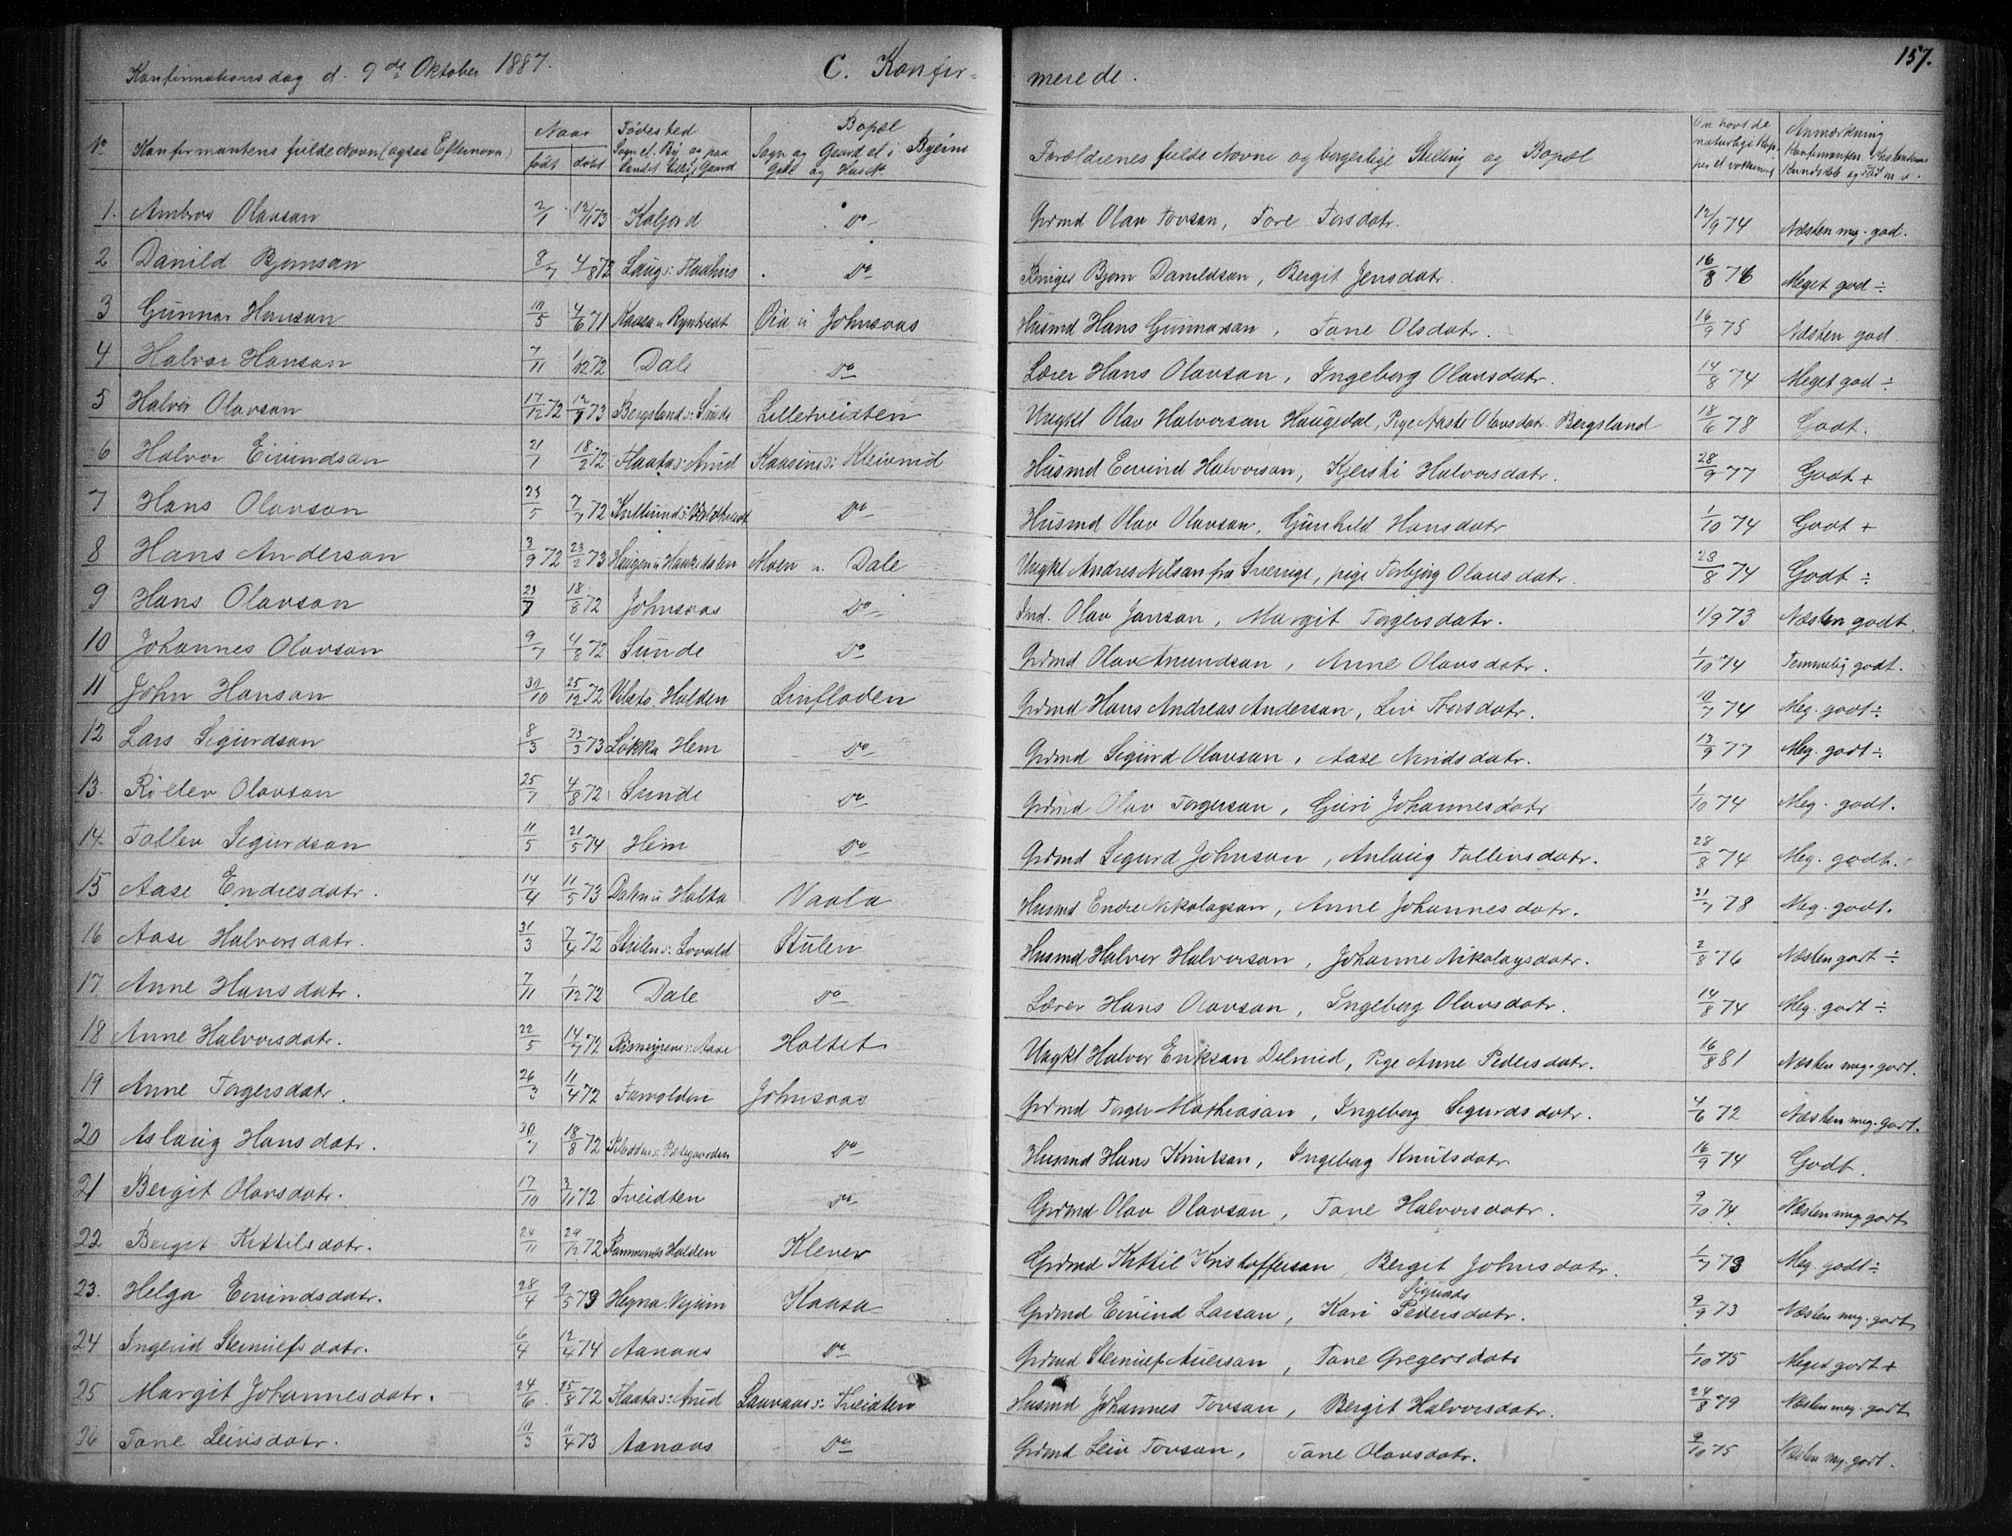 157.
Konfirmationsdag d. 9de Oktober 1887. C. Konfir- merede.
No Konfirmantens fulde Navn (ogsaa Efternavn) Naar født døbt Fødested Sogn el. By og paa Landet tillige Gaard Bopæl Sogn og Gaard el. i Byerne Gade og Hus No Forældrenes fulde Navne og borgerlige Stilling og Bopæl Anmærkning
1. Olavsan 2/1 12/1 73 Kaljord Do Grdmd Olav Tovsan, Tore Torsdatr. 12/9 74 Næsten meg. god.
2 Danild Bjørnsan 8/7 4/8 72 Laug s: Do Bjørn Danildsan, Bergit Jensdatr. 16/8 76 Meget god ÷
3 Gunnar Hansan 19/5 4/6 71 Kaasa u Øia u Johnsaas Husmd Hans Gunnarsan, Tone Olsdatr. 16/9 75 Næsten god
4 Halvor Hansan 7/11 1/12 72 Dale Do Lærer Hans Olavsan, Ingeborg Olavsdatr. 14/8 74 Meget god ÷
5 Halvor Olavsan 17/12 72 12/1 73 Bergsland s: Sunde Lilletveidten Ungkl Olav Halvorsan Haugedal, Pige Aaste Olavsdatr. Bergsland 18/6 78 Godt.
6 Halvor Eivindsan 21/1 18/2 72 Flaata s: Arud Kaasine s: Kleivrud Husmd Eivind Halvorsan, Kjersti Halvorsdatr. 28/9 77 Godt +
7 Hans Olavson 23/5 7/7 72 Do Husmd Olav Olavsan, Gunhild Hansdatr 1/10 74 Godt +
8 Hans Anderson 3/9 72 23/2 73 Haugen u Haukedalen Moen u. Dale Ungkl Andres Nilsan fra Sverrige, pige Torbjørg Olavsdatr. 23/8 74 Godt ÷
9 Hans Olavson 23/7 18/8 72 Johnsaas Do Ind. Olav Jansan, Margit Torgersdatr. 1/9 73 Næsten godt.
10 Johannes Olavson 9/7 4/8 72 Sunde Do Grdmd Olav Amundsan, Anne Olavsdatr. 1/10 74 Temmelig godt.
11 John Hanson 31/10 25/12 72 Halden Linfloden Grdmd Hans Andreas Anderson, Liv Torsdatr. 10/7 74 Meg. godt ÷
12 Lars Sigurdsan 8/3 23/3 73 Løkka Hem Do Grdmd Sigurd Olavsan, Aase Niridsdatr. 13/9 77 Meg. godt ÷
13. Rollev Olavson 25/7 4/8 72 Sunde Do Grdmd Olav Torgersan, Guri Johannesdatr 1/10 74 Meg. godt.
14. Tollev Sigurdson 11/5 21/5 74 Hem Do Grdmd Sigurd Johnson, Anlaug Tollevsdatr. 28/8 74 Meg. godt.
15 Aase Endresdatr. 14/4 11/5 73 Dalen u Holta Vaala Husmd Endre Nikolaysan, Anne Johannesdatr. 21/7 78 Meg. godt.
16 Aase Halvorsdatr. 31/3 7/4 72 Stulen s: Lovald Stulen Husmd Halvor Halvorsan, Johanne Nikolaysdatr. 2/8 76 Næsten godt ÷
17. Anne Hansdatr. 7/11 1/12 72 Dale Do Lærer Hans Olavsan, Ingeborg Olavsdatr. 14/8 74 Meg. godt ÷
18 Anne Halvorsdatr. 22/5 14/7 72 Aase Holtet Ungkl Halvor Eriksan Delmed, Pige Anne Pedersdatr. 16/8 81 Næsten meg. godt.
19 Anne Torgersdatr. 26/3 11/4 72 Tamolden Johnsaas Grdmd Torger Mathiasan, Ingeborg Sigurdsdatr. 4/6 72 Næsten meg. godt.
20 Aslaug Hansdatr. 30/7 18/8 72 Do Husmd Hans Knutsan, Ingeborg Knutsdatr 16/9 74 Godt.
21 Bergit Olavsdatr. 17/10 3/11 72 Tveidten Do Grdmd Olav Olavsan, Tone Halvorsdatr. 9/10 74. Næsten meg. godt
22 Berget Kittilsdatr. 24/11 29/12 72 Halden Klever Grdmd Kittil Kristofferson, Bergit Johnsdatr. 1/7 73 Meg. godt ÷
23. Helga Eivindsdatr. 28/4 9/5 73 Hegna Kaasa Grdmd Eivind Larsan, Kari Pedersdatr. Sigurds 9/9 73 Næsten meg. godt
24 Ingerid Steinulfsdatr. 6/4 12/4 74 Aanaas Do Grdmd Steinulf Aversan, Tone Gregersdatr 1/10 75 Meget godt +
25 Margit Johannesdatr. 24/6. 25/8 72 Flaata s: Arud Saunaas s: Tveidten Husmd Johannes Tovsan, Bergit Halvorsdatr. 24/8 79 Næsten meg. godt
26 Tone Leivsdatr. 19/3 11/4 73 Aanaas Do Grdmd Leiv Tovsan, Tone Olavsdatr. 9/10 75 Næsten meg. godt.